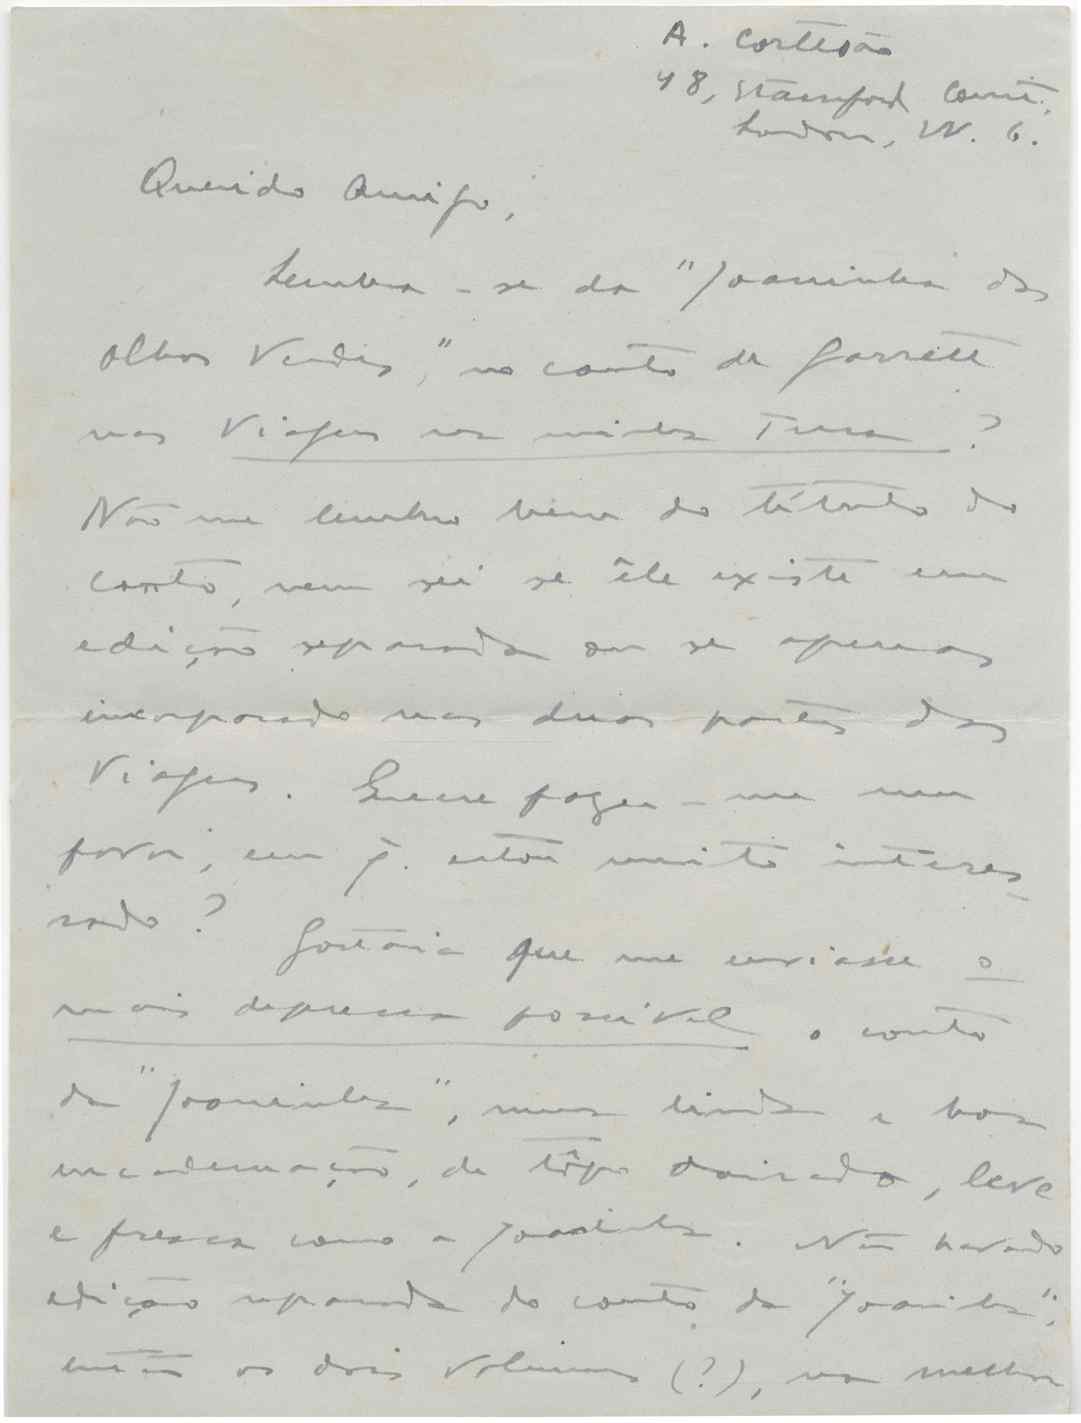 A. Cortesão
48, Stamford Court,
London, W. 6.
Querido Amigo,
Lembra-se da "Joaninha dos
Olhos Verdes," no conto de Garrett
nas Viagens na minha Terra?
Não me lembro bem do título do
conto, nem sei se êle existe em
edição separada ou se apenas
incorporado nas duas partes das
Viagens. Quere fazer-me um
favor, em q. estou muito interes-
sado? Gostaria que me enviasse o
mais depressa possivel o conto
da "Joaninha", numa linda e boa
encadernação, de tôpo doirado, leve
e fresca como a Joaninha. Não havendo
edição separada do conto da "Joaninha",
então os dois volumes (?), na melhor